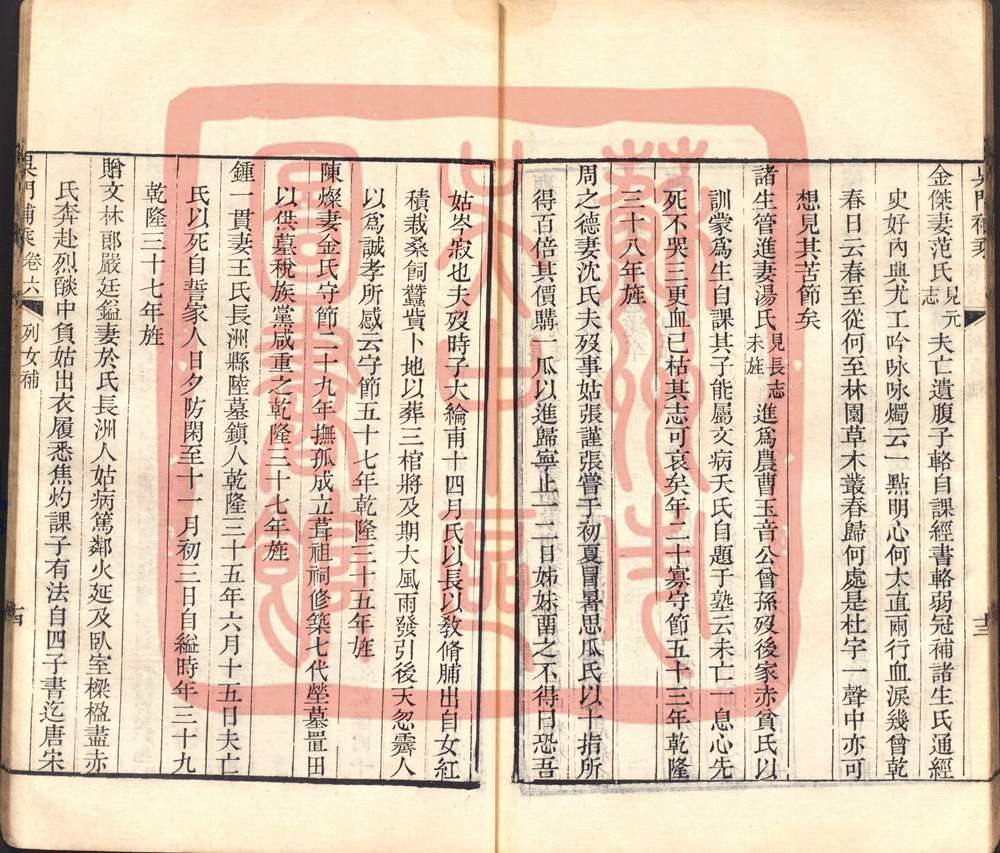 金傑妻范氏見元志夫亡遺腹子輅自課經書輅弱冠補諸生氏通經
史好內典尤工吟咏咏燭云一點明心何太直兩行血淚幾曾乾
春日云春至從何至林園草木叢春歸何處是杜宇一聲中亦可
想見其苦節矣
諸生管進妻湯氏見長志未旌進爲農曹玉音公曾孫歿後家赤貧氏以
訓蒙爲生自課其子能屬文病夭氏自題子塾云未亡一息心先
死不哭三更血已枯其志可哀矣年二十寡守節五十三年乾隆
三十八年旌
周之德妻沈氏夫歿事姑張謹張嘗于初夏冒暑思瓜氏以十指所
得百倍其價購一瓜以進歸寧止一二日姊妹畱之不得曰恐吾
姑岑寂也夫歿時子大綸甫十四月氏以長以敎脩脯出自女紅
積栽桑飼蠶貲卜地以葬三棺將及期大風雨發引後天忽霽人
以爲誠孝所感云守節五十七年乾隆三十五年旌
陳燦妻金氏守節二十九年撫孤成立葺祖祠修築七代塋墓置田
以供墓稅族黨咸重之乾隆三十七年旌
鍾一貫妻王氏長洲縣陸墓鎭人乾隆三十五年六月十五日夫亡
氏以死自誓家人日夕防閑至十一月初三日自縊時年三十九
乾隆三十七年旌
贈文林郎嚴廷鎰妻於氏長洲人姑病篤鄰火延及臥室樑楹盡赤
氏奔赴烈燄中負姑出衣履悉焦灼課子有法自四子書迄唐宋
吳門補乘卷六 列女補
蘇州市
吳中區
圖書館